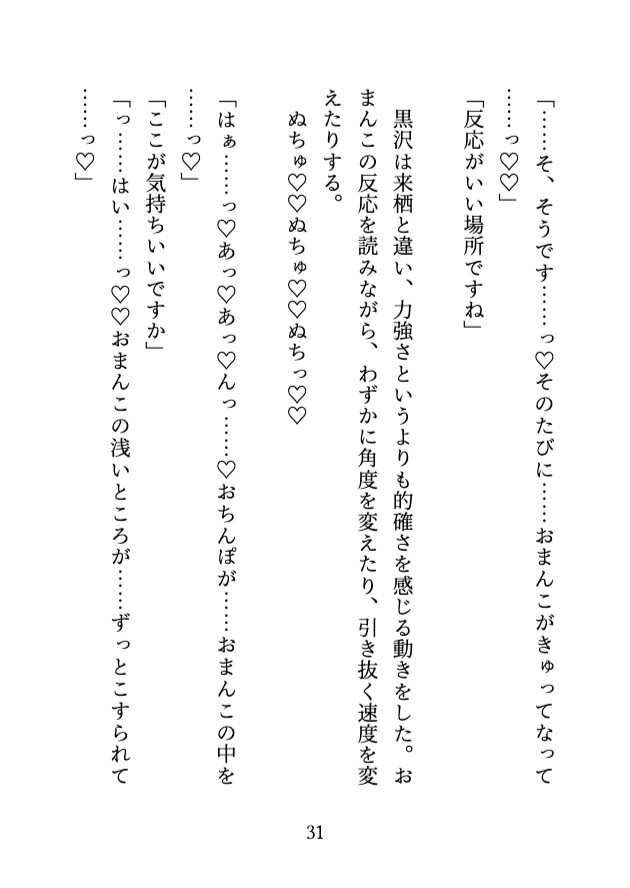 「……そ、そうです……っ♡そのたびに……おまんこがきゅってなって
……っ♡♡」
「反応がいい場所ですね」
黒沢は来栖と違い、力強さというよりも的確さを感じる動きをした。お
まんこの反応を読みながら、わずかに角度を変えたり、引き抜く速度を変
えたりする。
ぬちゅ♡♡ぬちゅ♡♡ぬちっ♡♡
「はぁ……っ♡あっ♡あっ♡んっ……♡おちんぽが……おまんこの中を
……っ♡」
「ここが気持ちいいですか」
「っ……はい……っ♡♡おまんこの浅いところが……ずっとこすられて
……っ♡」
31